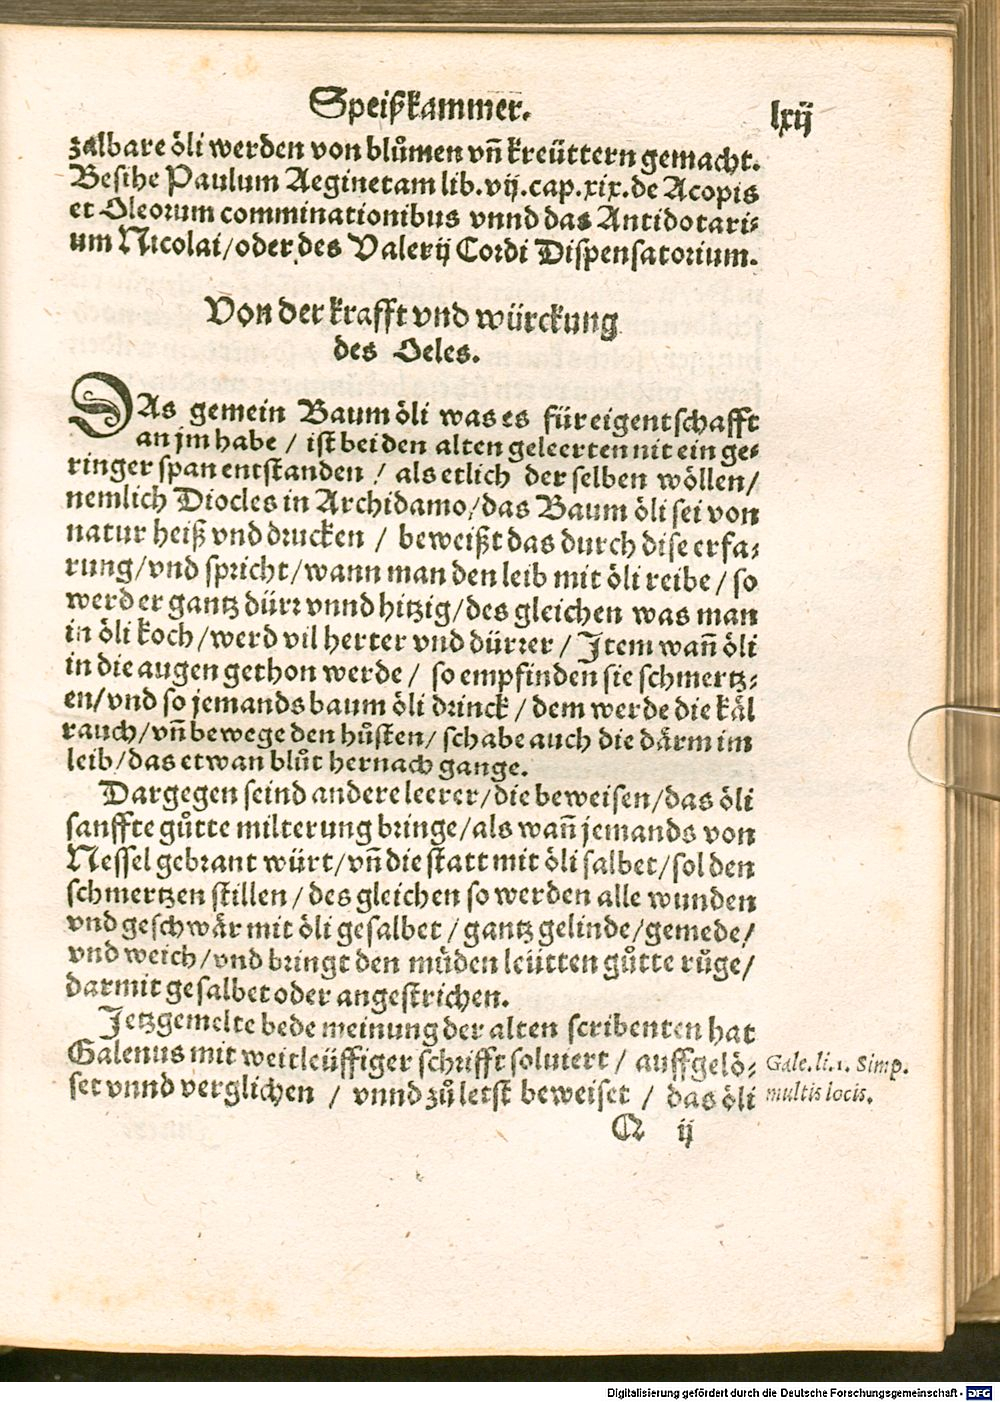 Speißkammer.
lxij
zalbare öli werden von blůmen vñ kreüttern gemacht.
Besihe Paulum Aeginetam lib.vij.cap.xix.de Acopis
et Oleorum comminationibus vnnd das Antidotari⸗
um Nicolai/oder des Valerij Cordi Dispensatorium.
Von der krafft vnd würckung
des Oeles.
DAs gemein Baum öli was es für eigentschafft
an jm habe / ist bei den alten geleerten nit ein ge⸗
ringer span entstanden / als etlich der selben wöllen/
nemlich Diocles in Archidamo/das Baum öli sei von
natur heiß vnd drucken / beweißt das durch dise erfa⸗
rung/vnd spricht/wann man den leib mit öli reibe/so
werd er gantz dürꝛ vnnd hitzig/des gleichen was man
in öli koch/werd vil herter vnd dürꝛer/Item wañ öli
in die augen gethon werde / so empfinden sie schmertz⸗
en/vnd so jemands baum öli drinck/dem werde die käl
rauch/vñ bewege den hůsten/ schabe auch die därm im
leib/das etwan blůt hernach gange.
Dargegen seind andere leerer/die beweisen/das öli
sanffte gůtte milterung bringe/als wañ jemands von
Nessel gebrant würt/vñ die statt mit öli salbet/sol den
schmertzen stillen/des gleichen so werden alle wunden
vnd geschwär mit öli gesalbet/gantz gelinde/gemede/
vnd weich/vnd bringt den müden leütten gůtte růge/
darmit gesalbet oder angestrichen.
Jetzgemelte bede meinung der alten scribenten hat
Galenus mit weitleüffiger schrifft soluiert / auffgelö⸗
set vnnd verglichen / vnnd zů letst beweiset / das öli
Gale.li.1. Simp.
multis locis.
Q ij
Digitalisierung gefördert durch die Deutsche Forschungsgemeinschaft - DFG